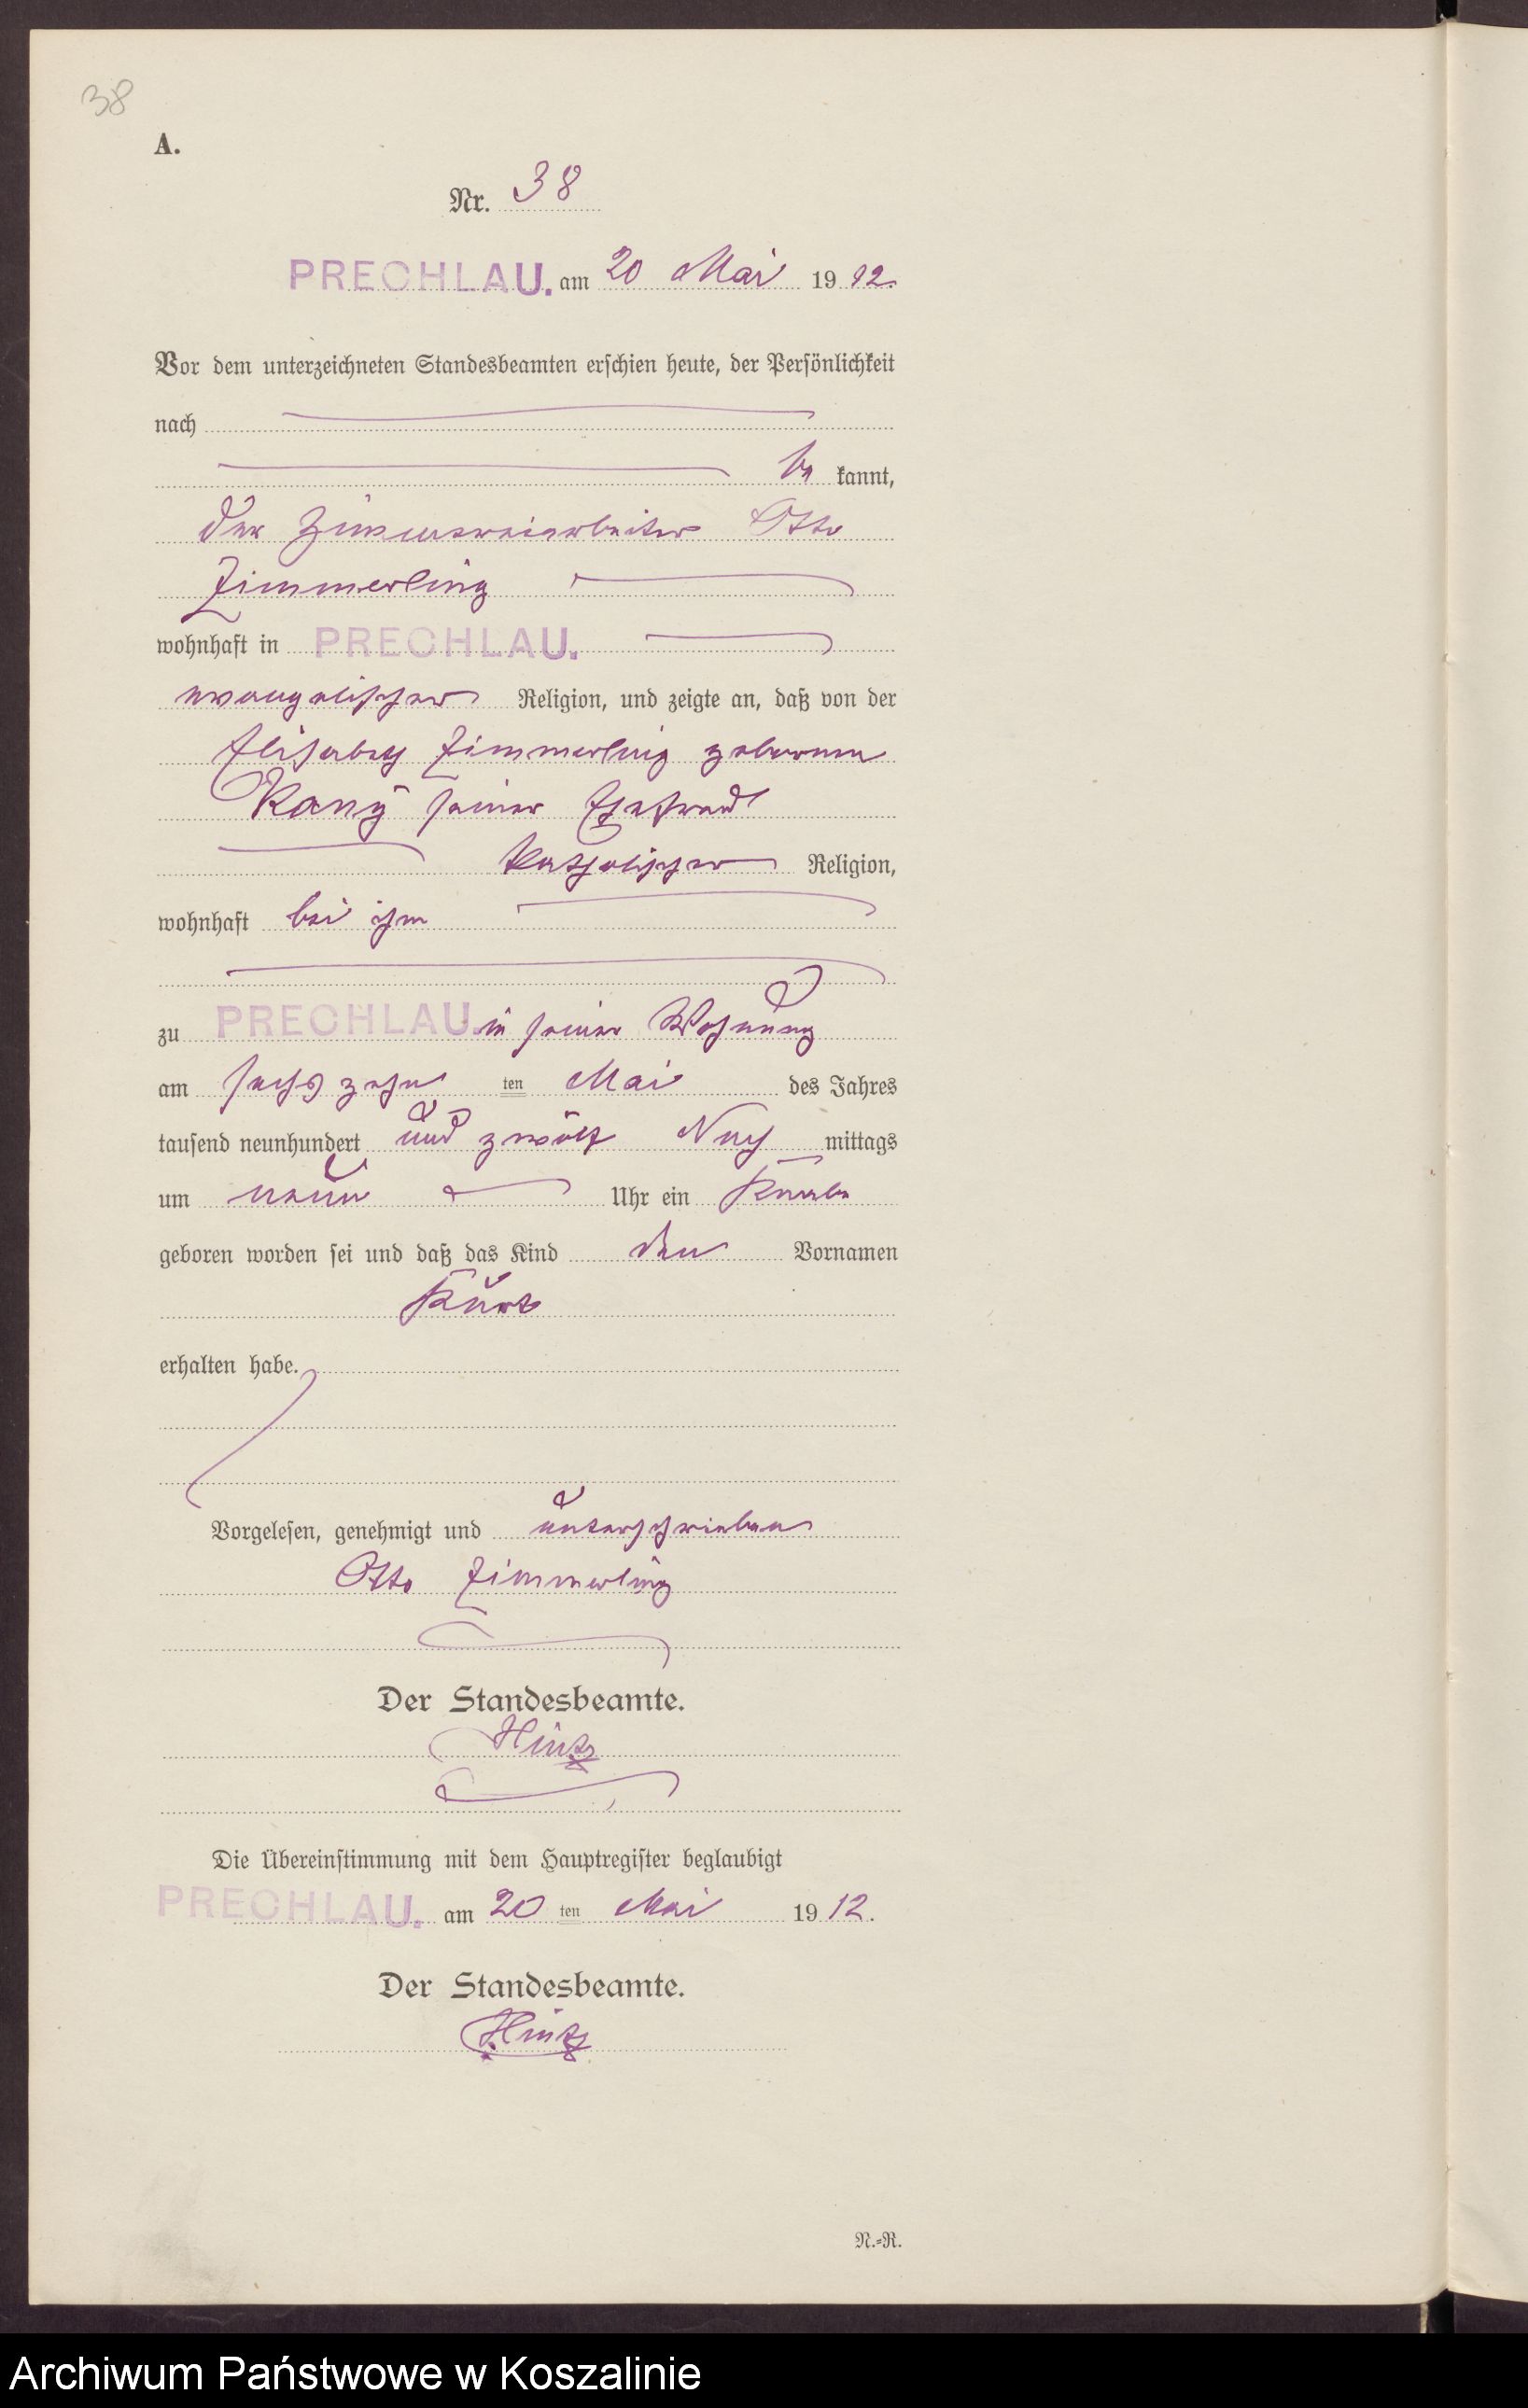 38
A.
Nr. 38
PRECHLAU. am 20 Mai 1912.
Vor dem unterzeichneten Standesbeamten erschien heute, der Persönlichkeit
nach
be kannt,
der Otto
Zimmerling
wohnhaft in PRECHLAU.
evangelischer Religion, und zeigte an, daß von der
Elisabeth Zimmerling geborenen
seiner Ehefrau
katholischer Religion,
wohnhaft bei ihm
zu PRECHLAU. in seiner Wohnung
am sechszehn ten Mai des Jahres
tausend neunhundert und zwölf Nach mittags
um neun Uhr ein Knabe
geboren worden sei und daß das Kind den Vornamen
Kurt
erhalten habe.
Vorgelesen, genehmigt und unterschrieben
Otto Zimmerling
Der Standesbeamte.
Hintz
Die Übereinstimmung mit dem Hauptregister beglaubigt
PRECHLAU. am 20 ten Mai 1912.
Der Standesbeamte.
Hintz
N.-R.
Archiwum Państwowe w Koszalinie